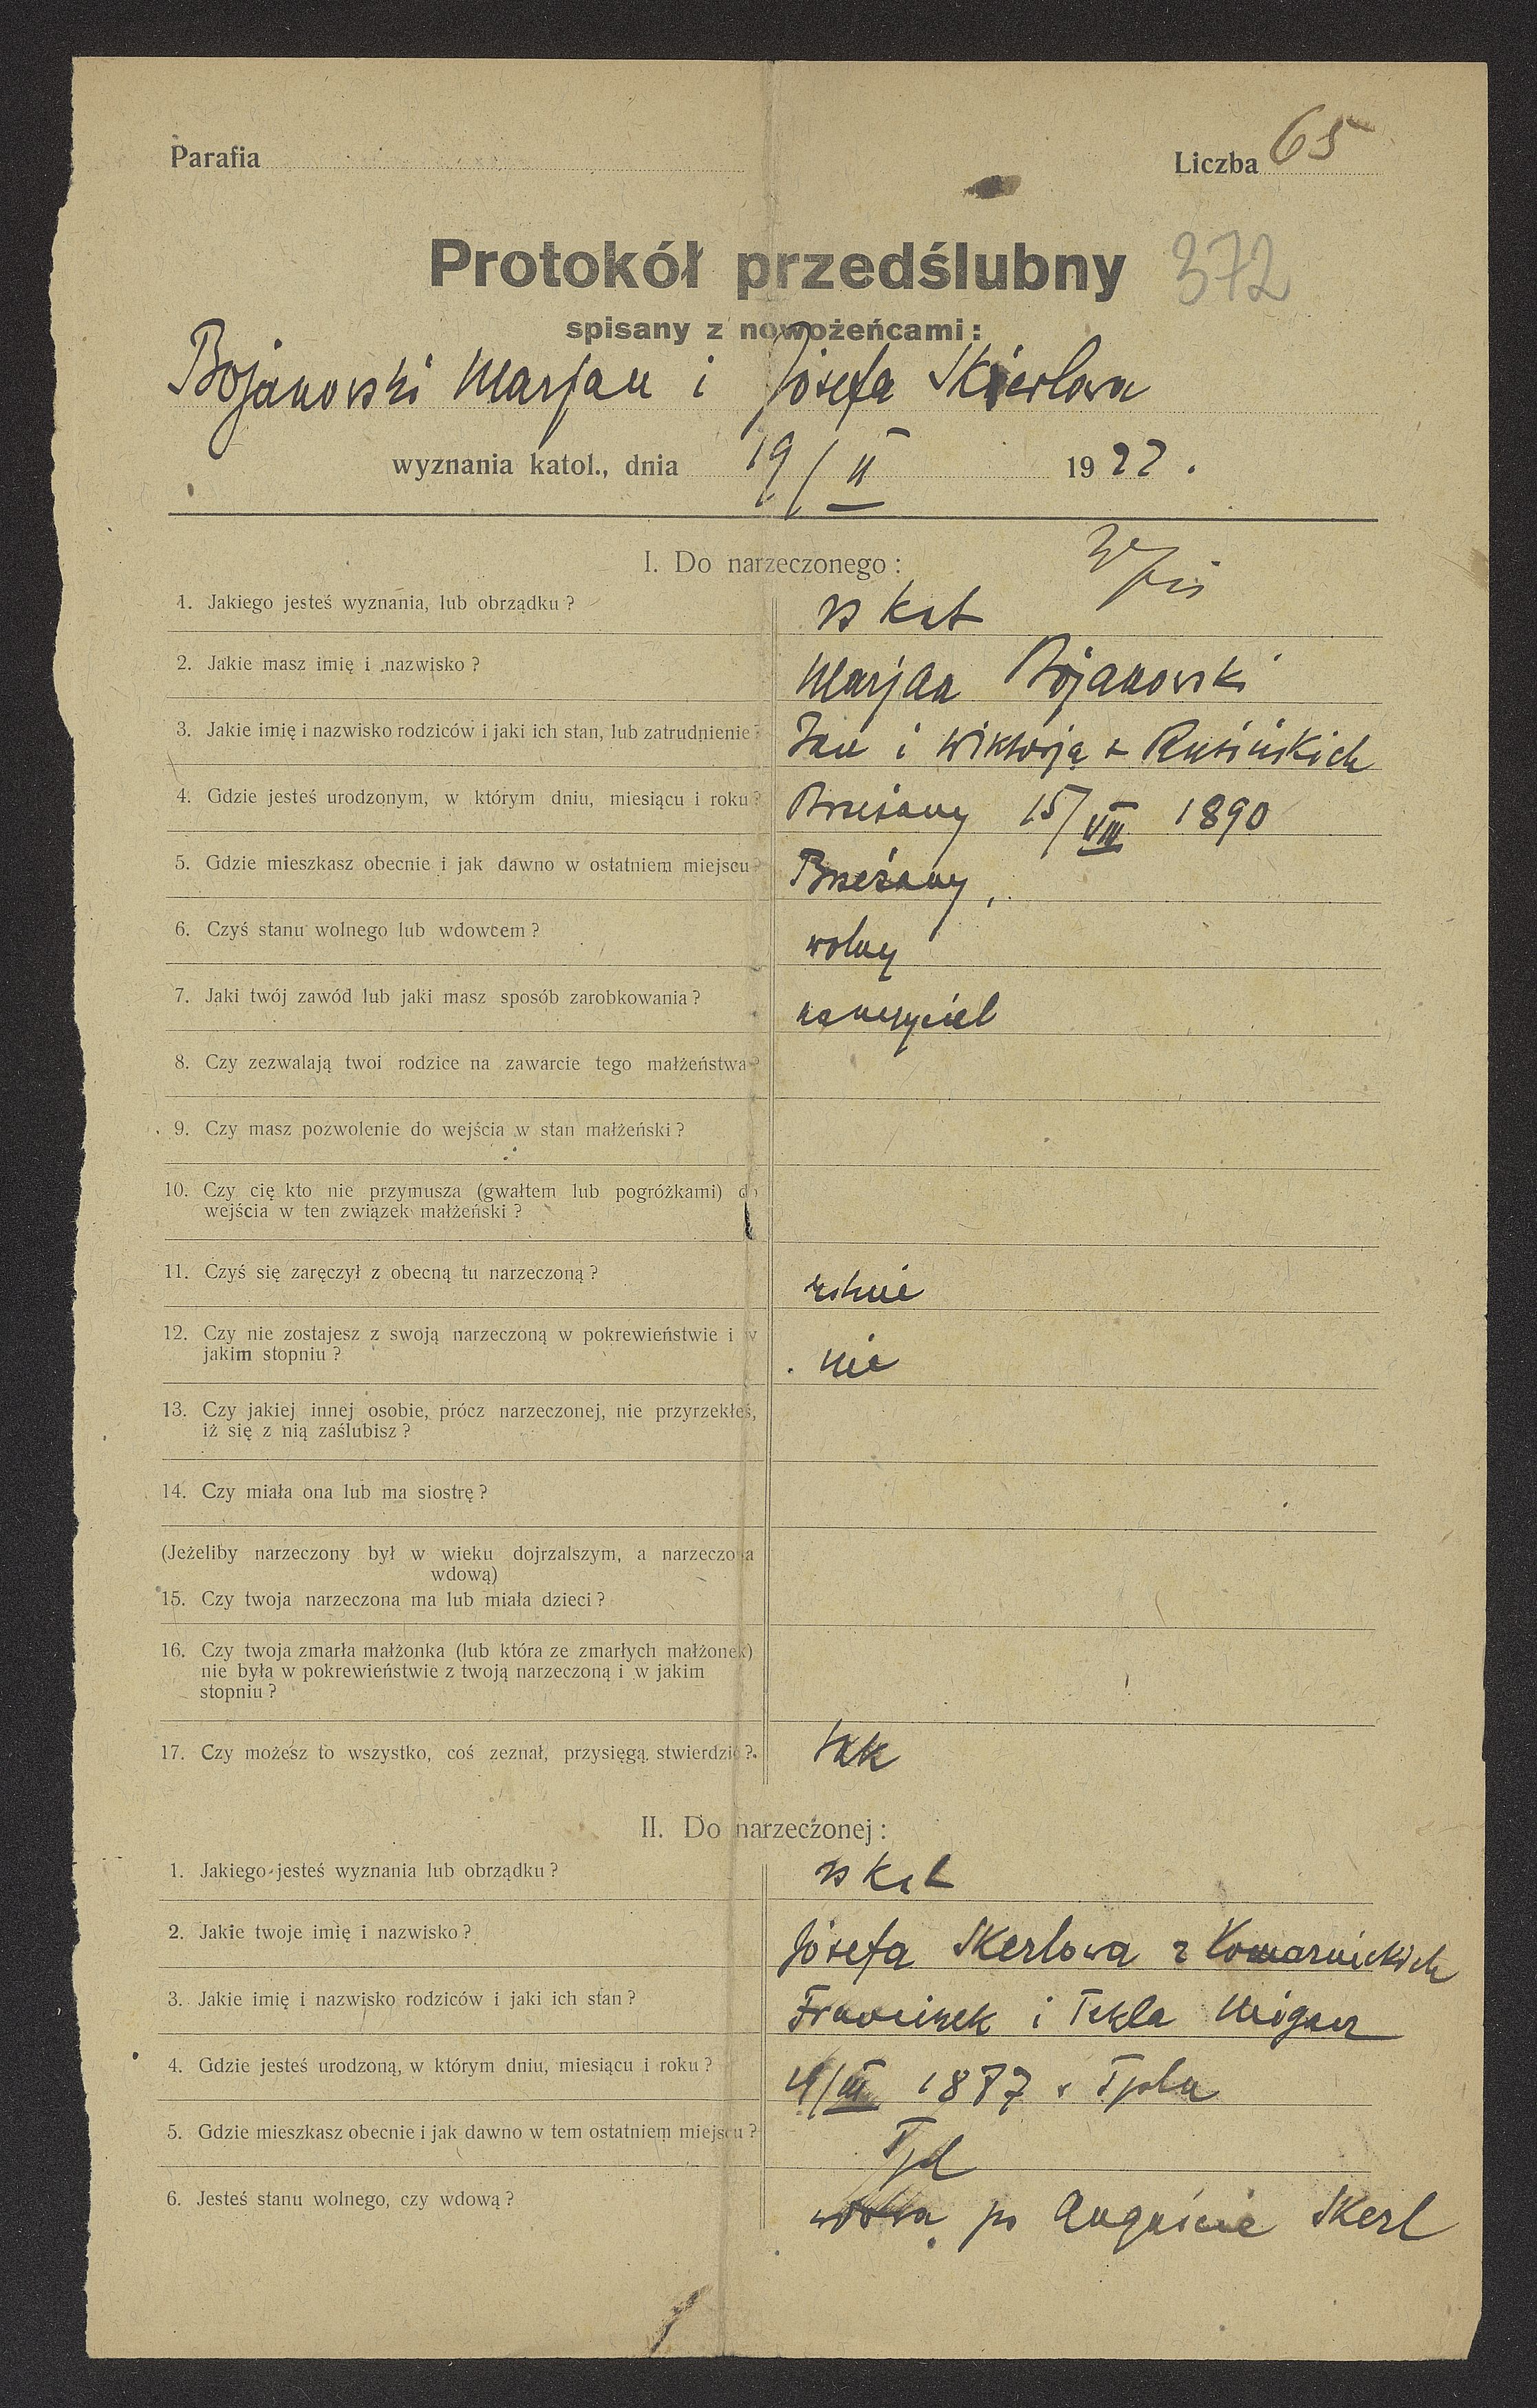 Parafia
Liczba 65
Protokół przedślubny 372
spisany z nowożeńcami:
Bojanowski Marjan i Józefa Skierlowa
wyznania katol., dnia 19/II 1922.
I. Do narzeczonego:
1. Jakiego jesteś wyznania, lub obrządku? rz kat
2. Jakie masz imię i nazwisko? Marjan Bojanowski
3. Jakie imię i nazwisko rodziców i jaki ich stan, lub zatrudnienie? Jan i Wiktorja z Rusińskich
4. Gdzie jesteś urodzonym, w którym dniu, miesiącu i roku? Brzeżany 15/VIII 1890
5. Gdzie mieszkasz obecnie i jak dawno w ostatniem miejscu? Brzeżany,
6. Czyś stanu wolnego lub wdowcem? wolny
7. Jaki twój zawód lub jaki masz sposób zarobkowania? nauczyciel
8. Czy zezwalają twoi rodzice na zawarcie tego małżeństwa?
9. Czy masz pozwolenie do wejścia w stan małżeński?
10. Czy cię kto nie przymusza (gwałtem lub pogróżkami) do
wejścia w ten związek małżeński?
11. Czyś się zaręczył z obecną tu narzeczoną?
12. Czy nie zostajesz z swoją narzeczoną w pokrewieństwie i w
jakim stopniu? nie
13. Czy jakiej innej osobie, prócz narzeczonej, nie przyrzekłeś,
iż się z nią zaślubisz?
14. Czy miała ona lub ma siostrę?
(Jeżeliby narzeczony był w wieku dojrzalszym, a narzeczona
wdową)
15. Czy twoja narzeczona ma lub miała dzieci?
16. Czy twoja zmarła małżonka (lub która ze zmarłych małżonek)
nie była w pokrewieństwie z twoją narzeczoną i w jakim
stopniu?
17. Czy możesz to wszystko, coś zeznał, przysięgą stwierdzić? tak
II. Do narzeczonej:
1. Jakiego jesteś wyznania lub obrządku? rz kat
2. Jakie twoje imię i nazwisko? Józefa Skerlowa z Komarnickich
3. Jakie imię i nazwisko rodziców i jaki ich stan? Franciszek i Tekla
4. Gdzie jesteś urodzoną, w którym dniu, miesiącu i roku? 1887
5. Gdzie mieszkasz obecnie i jak dawno w tem ostatniem miejscu?
6. Jesteś stanu wolnego, czy wdową? wdowa po Auguście Skerl